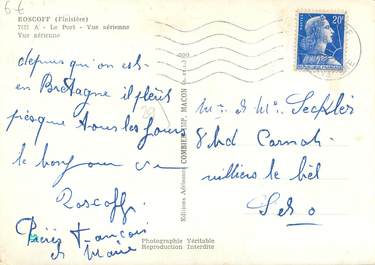 6 €
ROSCOFF (Finistère)
A - Le Port - Vue aérienne
Vue aérienne
depuis qu'on est
en Bretagne il pleut
presque tous les jours
le bonjour de
Roscoff
François
et Marie
Editions Aériennes COMBIER IMP. MACON
Photographie Véritable
Reproduction Interdite
20F
Mme et Mr
8 bd Carnot
villiers le bel
S et O